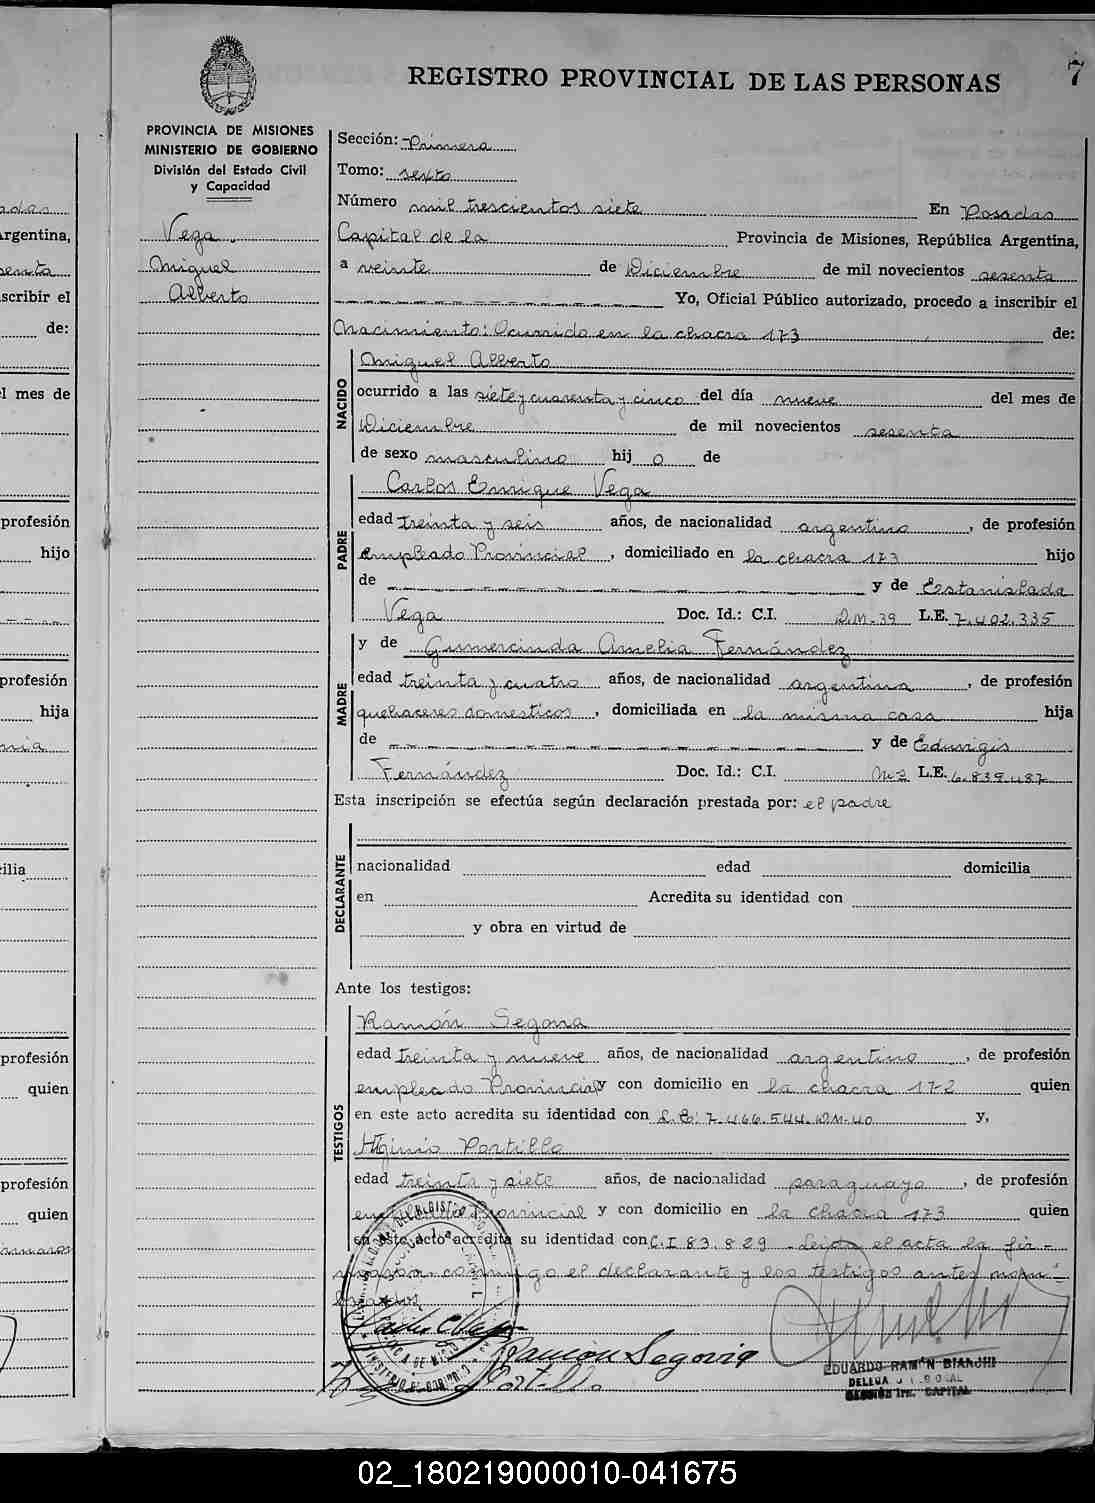 7
REGISTRO PROVINCIAL DE LAS PERSONAS
PROVINCIA DE MISIONES
MINISTERIO DE GOBIERNO
División del Estado Civil
y Capacidad
Vega
Miguel
Alberto
Sección: Primera
Tomo: sexto
Número mil trescientos siete En Posadas
Capital de la Provincia de Misiones, República Argentina,
a veinte de Diciembre de mil novecientos sesenta
Yo, Oficial Público autorizado, procedo a inscribir el
Nacimiento: Ocurrido en la chacra 173 de:
NACIDO
Miguel Alberto
ocurrido a las siete y cuarenta y cinco del día nueve del mes de
Diciembre de mil novecientos sesenta
de sexo masculino hij o de
PADRE
Carlos Enrique Vega
edad treinta y seis años, de nacionalidad argentino, de profesión
empleado Provincial, domiciliado en la chacra 173 hijo
de y de Estanislada
Vega Doc. Id.: C.I. D.M. 39 L.E. 7.402.335
y de Gumercinda Amelia Fernández
MADRE
edad treinta y cuatro años, de nacionalidad argentina, de profesión
quehaceres domesticos, domiciliada en la misma casa hija
de y de Eduvigis
Fernández Doc. Id.: C.I. L.E. 6.839.487
Esta inscripción se efectúa según declaración prestada por: el padre
DECLARANTE
nacionalidad edad domicilia
en Acredita su identidad con
y obra en virtud de
Ante los testigos:
TESTIGOS
Ramón Segovia
edad treinta y nueve años, de nacionalidad argentino, de profesión
empleado Provincial y con domicilio en la chacra 172 quien
en este acto acredita su identidad con L.E. 7.466.544. D.M. 40 y,
Higinio Portillo
edad treinta y siete años, de nacionalidad paraguayo, de profesión
empleado Provincial y con domicilio en la chacra 173 quien
en este acto acredita su identidad con C.I 83.829. Leida el acta la fir-
maron conmigo el declarante y los testigos antes nom-
brados
Ramón Segovia
Portillo
EDUARDO RAMÓN BIANCHI
SECCIÓN 1ra. CAPITAL
02_180219000010-041675